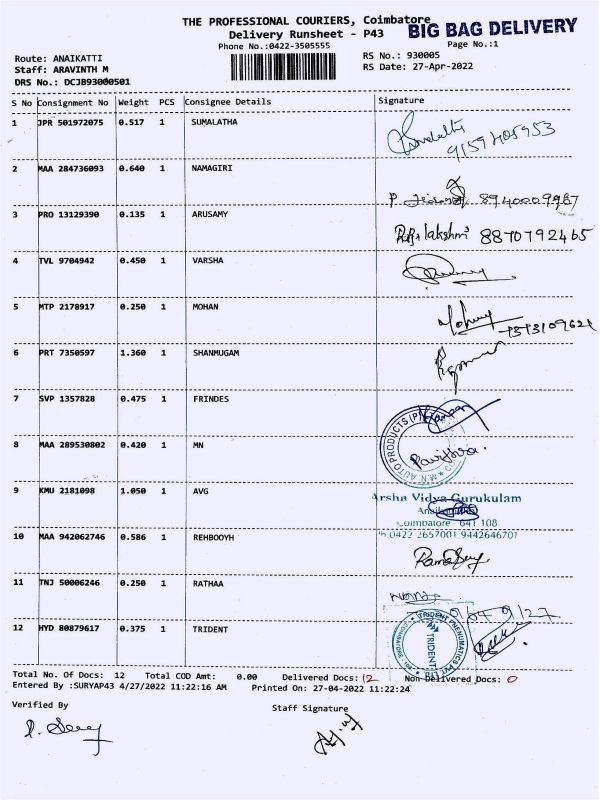 THE PROFESSIONAL COURIERS, Coimbatore
BIG BAG DELIVERY
Delivery Runsheet - P43
Phone No.:0422-3505555
Page No.:1
Route: ANAIKATTI
RS No.: 930005
Staff: ARAVINTH M
RS Date: 27-Apr-2022
DRS No.: DCJB93000501
S No Consignment No Weight PCS Consignee Details Signature
1 JPR 501972075 0.517 1 SUMALATHA
9159405953
2 MAA 284736093 0.640 1 NAMAGIRI
8940009987
3 PRO 13129390 0.135 1 ARUSAMY
lakshmi 8870792465
4 TVL 9704942 0.450 1 VARSHA
5 MTP 2178917 0.250 1 MOHAN
6 PRT 7350597 1.360 1 SHANMUGAM
7 SVP 1357828 0.475 1 FRINDES
8 MAA 289530802 0.420 1 MN
M.N. AUTO PRODUCTS (P)
Pavithra.
9 KMU 2181098 1.050 1 AVG
Arsha Vidya Gurukulam
Coimbatore 641 108
Ph 0422 2657001 9442646701
10 MAA 942062746 0.586 1 REHBOOYH
11 TNJ 50006246 0.250 1 RATHAA
12 HYD 80879617 0.375 1 TRIDENT
TRIDENT PNEUMATICS PVT LTD
TRIDENT
Total No. Of Docs: 12 Total COD Amt: 0.00 Delivered Docs: 12 Non Delivered Docs: 0
Entered By :SURYAP43 4/27/2022 11:22:16 AM Printed On: 27-04-2022 11:22:24
Verified By
Staff Signature